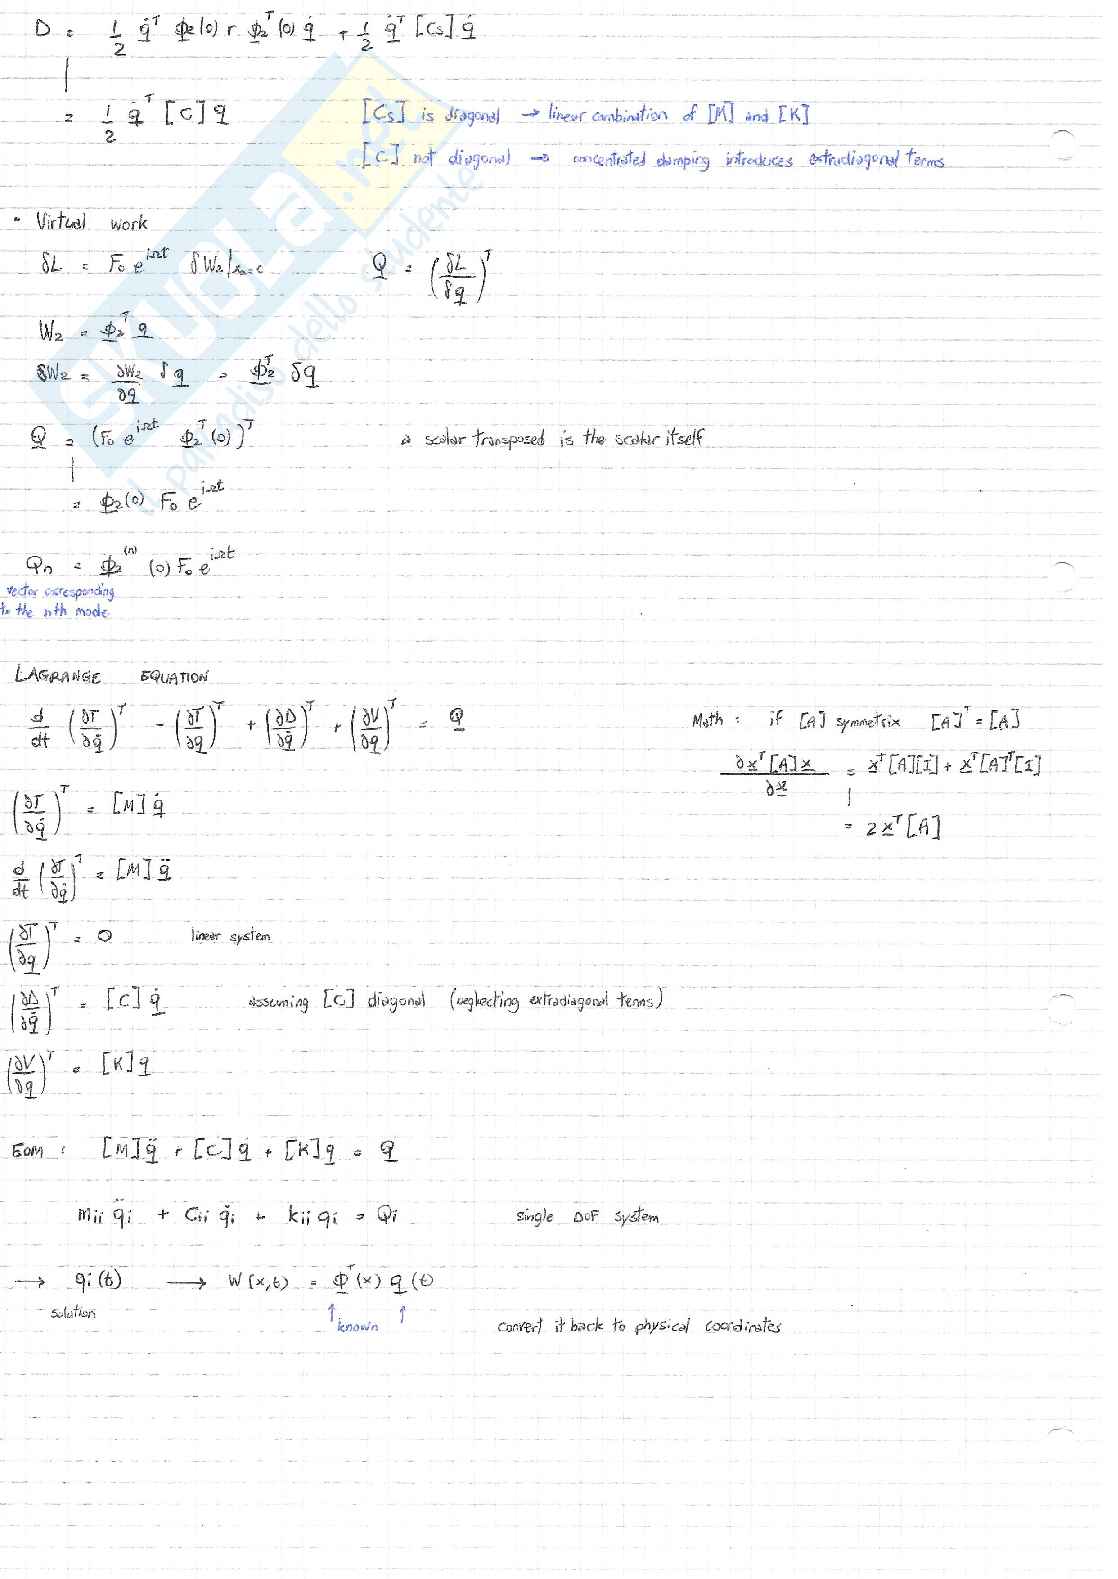 D = 1/2 q̇ᵀ Φ₂(0) r Φ₂ᵀ(0) q̇ + 1/2 q̇ᵀ [Cs] q̇
= 1/2 q̇ᵀ [C] q̇
[Cs] is diagonal → linear combination of [M] and [K]
[C] not diagonal → concentrated damping introduces extradiagonal terms
• Virtual work
δL = F₀ e^{iΩt} δW₂|
Q = (δL/δq)ᵀ
W₂ = Φ₂ᵀ q
δW₂ = ∂W₂/∂q δq = Φ₂ᵀ δq
Q = (F₀ e^{iΩt} Φ₂ᵀ(0))ᵀ a scalar transposed is the scalar itself
= Φ₂(0) F₀ e^{iΩt}
Qn = Φ₂⁽ⁿ⁾(0) F₀ e^{iΩt}
vector corresponding
to the nth mode
LAGRANGE EQUATION
d/dt (∂T/∂q̇)ᵀ - (∂T/∂q)ᵀ + (∂D/∂q̇)ᵀ + (∂V/∂q)ᵀ = Q
Math: if [A] symmetrix [A]ᵀ = [A]
∂xᵀ[A]x/∂x = xᵀ[A][I] + xᵀ[A]ᵀ[I]
= 2xᵀ[A]
(∂T/∂q̇)ᵀ = [M] q̇
d/dt (∂T/∂q̇)ᵀ = [M] q̈
(∂T/∂q)ᵀ = 0 linear system
(∂D/∂q̇)ᵀ = [C] q̇ assuming [C] diagonal (neglecting extradiagonal terms)
(∂V/∂q)ᵀ = [K] q
EOM: [M] q̈ + [C] q̇ + [K] q = Q
mii q̈i + cii q̇i + kii qi = Qi single DOF system
→ qi(t) → W(x,t) = Φᵀ(x) q(t)
solution
↑ known ↑
convert it back to physical coordinates
SKUOLA.net
il paradiso dello studente